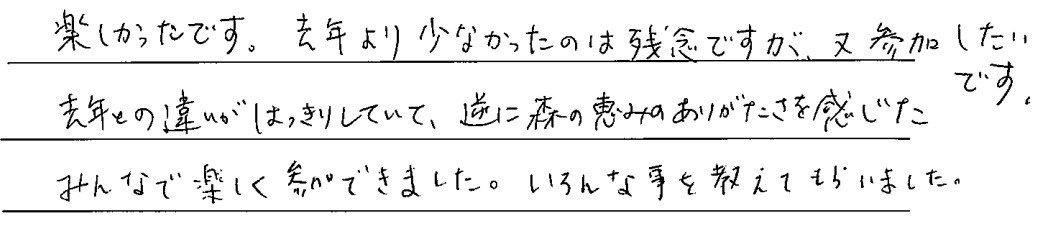 楽しかったです。去年より少なかったのは残念ですが、又参加したい
です。
去年との違いがはっきりしていて、逆に森の恵みのありがたさを感じた
みんなで楽しく参加できました。いろんな事を教えてもらいました。